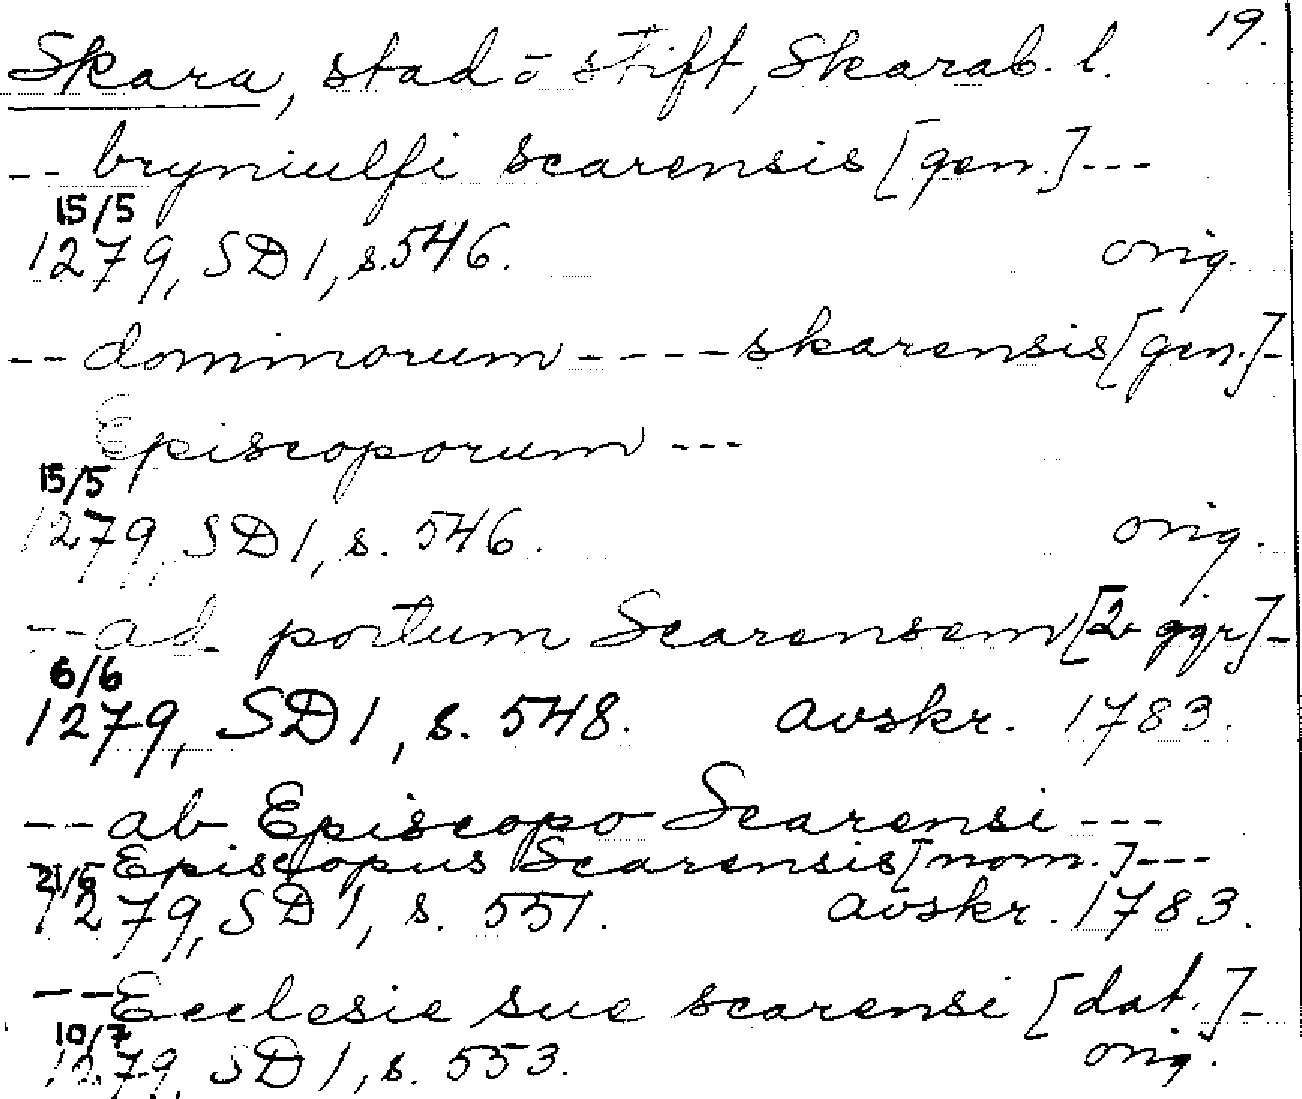 19.
Skara, stad o stift, Skarab. l.
-- bryniulfi scarensis [gen.] ---
15/5
1279, SD 1, s. 546. orig.
-- dominorum ---- skarensis [gen.] -
Episcoporum ---
15/5
1279, SD 1, s. 546. orig.
-- ad portum Scarensem [2 ggr] -
6/6
1279, SD 1, s. 548. avskr. 1783.
-- ab Episcopo Scarensi ---
Episcopus Scarensis [nom.] ---
21/6
1279, SD 1, s. 551. avskr. 1783.
-- Ecclesie sue scarensi [dat.] -
10/7
1279, SD 1, s. 553. orig.